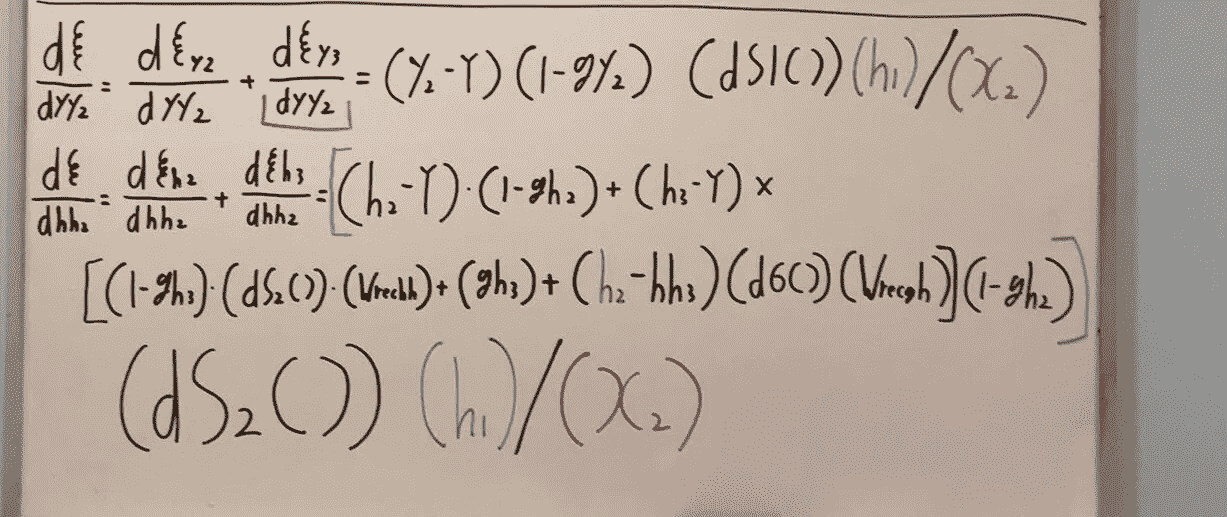 dξ/dyy₂ = dξy₂/dyy₂ + dξy₃/dyy₂ = (y₂-Y)(1-gy₂) (dS1())(h₁)/(x₂)
dξ/dhh₂ = dξh₂/dhh₂ + dξh₃/dhh₂ = [(h₂-Y)·(1-gh₂)+(h₃-Y)×
[(1-gh₃)·(dS₂())·(Wrechh)+(gh₃)+(h₂-hh₃)(dσ())(Wrecgh)](1-gh₂)]
(dS₂()) (h₁)/(x₂)